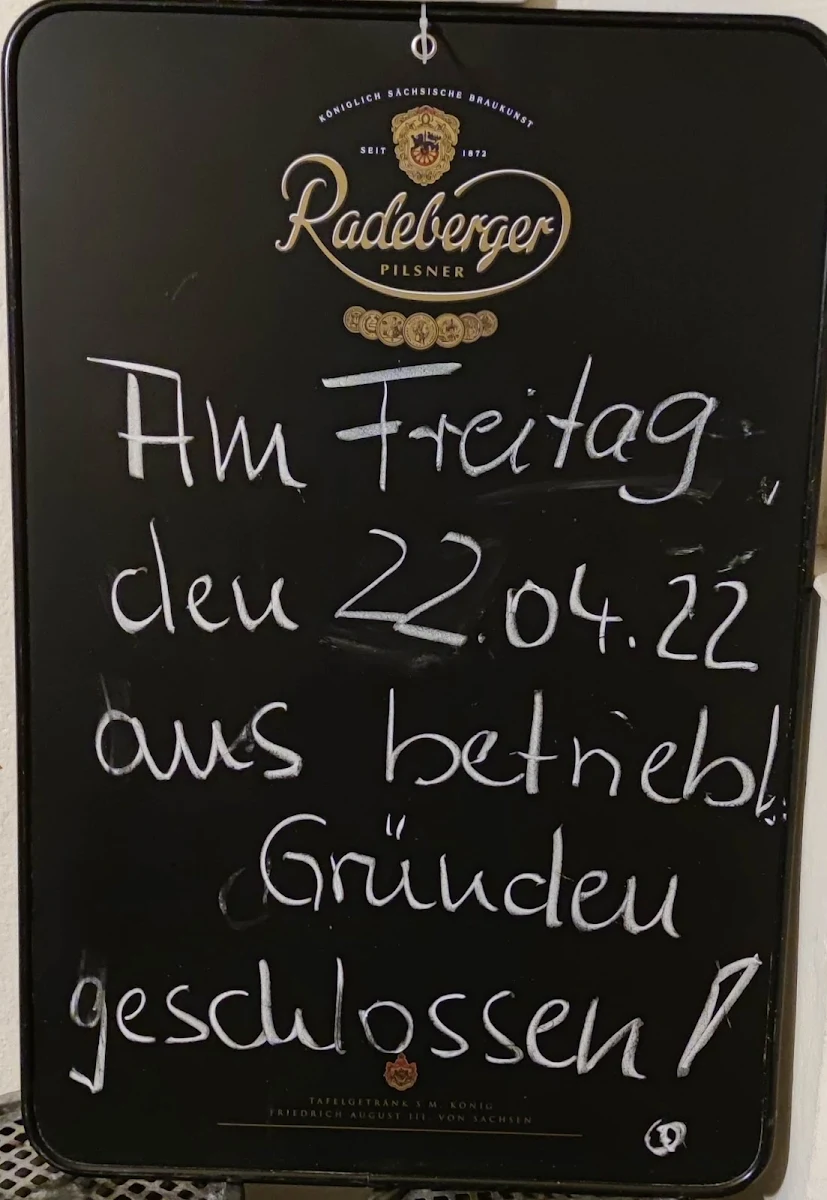 KÖNIGLICH SÄCHSISCHE BRAUKUNST
SEIT 1872
Radeberger
PILSNER
Am Freitag,
den 22.04.22
aus betriebl.
Gründen
geschlossen!
TAFELGETRÄNK S.M. KÖNIG
FRIEDRICH AUGUST III. VON SACHSEN